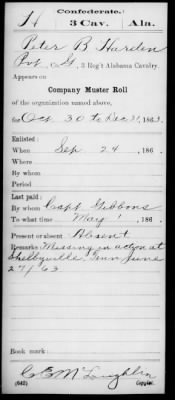 Confederate.
H 3 Cav. Ala.
Peter B Harden
Pvt, Co. G, 3 Reg't Alabama Cavalry.
Appears on
Company Muster Roll
of the organization named above,
for Oct 30 to Dec 31, 1863.
Enlisted:
When Sep 24, 186 .
Where
By whom
Period
Last paid:
By whom Capt Gibbons
To what time May 1, 186 .
Present or absent Absent
Remarks: Missing in action at
Shelbyville Tenn June
27/63
Book mark:
C E McLoughlin
(642) Copyist.